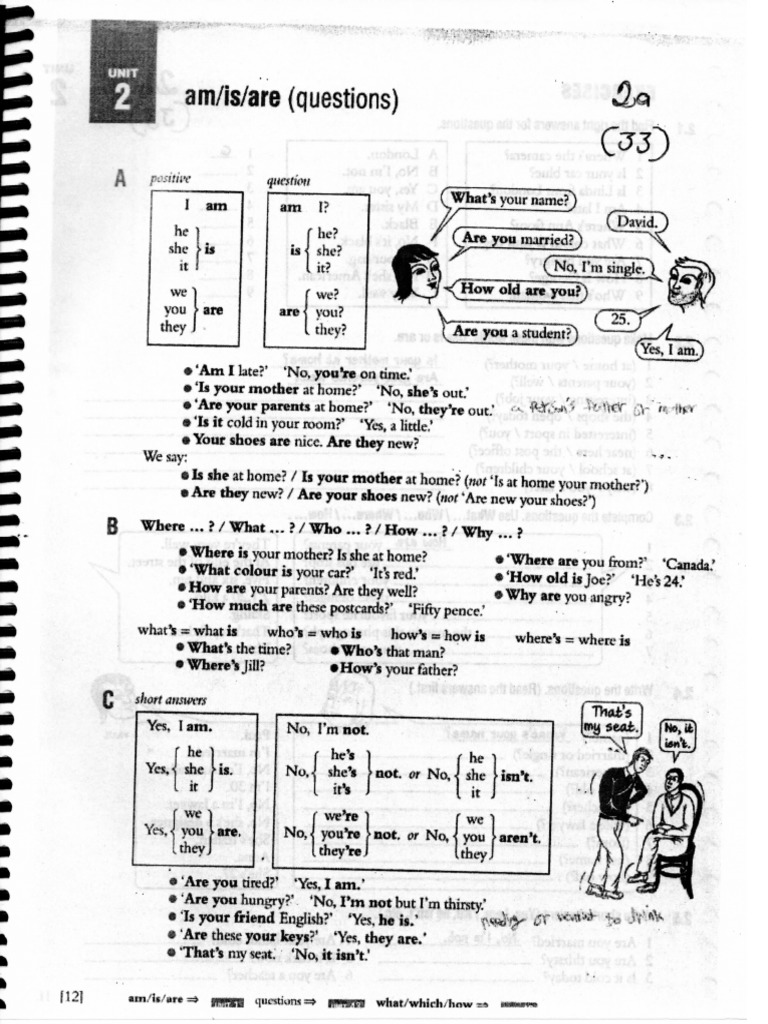 UNIT
2
am/is/are (questions)
2a
(33)
A
positive
question
I am
am I?
he
she
it
is
is
he?
she?
it?
we
you
they
are
are
we?
you?
they?
What's your name?
David.
Are you married?
No, I'm single.
How old are you?
25.
Are you a student?
Yes, I am.
● 'Am I late?' 'No, you're on time.'
● 'Is your mother at home?' 'No, she's out.'
● 'Are your parents at home?' 'No, they're out.' a person's father or mother
● 'Is it cold in your room?' 'Yes, a little.'
● Your shoes are nice. Are they new?
We say:
● Is she at home? / Is your mother at home? (not 'Is at home your mother?')
● Are they new? / Are your shoes new? (not 'Are new your shoes?')
B
Where ... ? / What ... ? / Who ... ? / How ... ? / Why ... ?
● Where is your mother? Is she at home?
● 'What colour is your car?' 'It's red.'
● How are your parents? Are they well?
● 'How much are these postcards?' 'Fifty pence.'
● 'Where are you from?' 'Canada.'
● 'How old is Joe?' 'He's 24.'
● Why are you angry?
what's = what is who's = who is how's = how is where's = where is
● What's the time? ● Who's that man?
● Where's Jill? ● How's your father?
C
short answers
Yes, I am.
Yes,
he
she
it
is.
Yes,
we
you
they
are.
No, I'm not.
No,
he's
she's
it's
not. or No,
he
she
it
isn't.
No,
we're
you're
they're
not. or No,
we
you
they
aren't.
That's
my seat.
No, it
isn't.
● 'Are you tired?' 'Yes, I am.'
● 'Are you hungry?' 'No, I'm not but I'm thirsty.'
● 'Is your friend English?' 'Yes, he is.' needing or want to drink
● 'Are these your keys?' 'Yes, they are.'
● 'That's my seat.' 'No, it isn't.'
[12]
am/is/are ⇒ questions ⇒ what/which/how ⇒